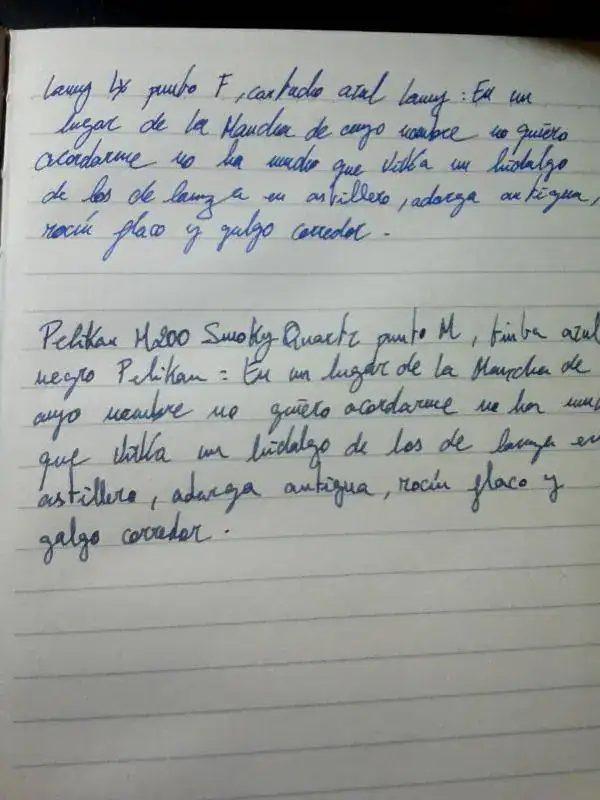 Lamy Lx punto F, cartucho azul Lamy: En un
lugar de la Mancha de cuyo nombre no quiero
acordarme no ha mucho que vivía un hidalgo
de los de lanza en astillero, adarga antigua,
rocín flaco y galgo corredor.
Pelikan M200 Smoky Quartz punto M, tinta azul
negro Pelikan: En un lugar de La Mancha de
cuyo nombre no quiero acordarme no ha muc
que vivía un hidalgo de los de lanza en
astillero, adarga antigua, rocín flaco y
galgo corredor.